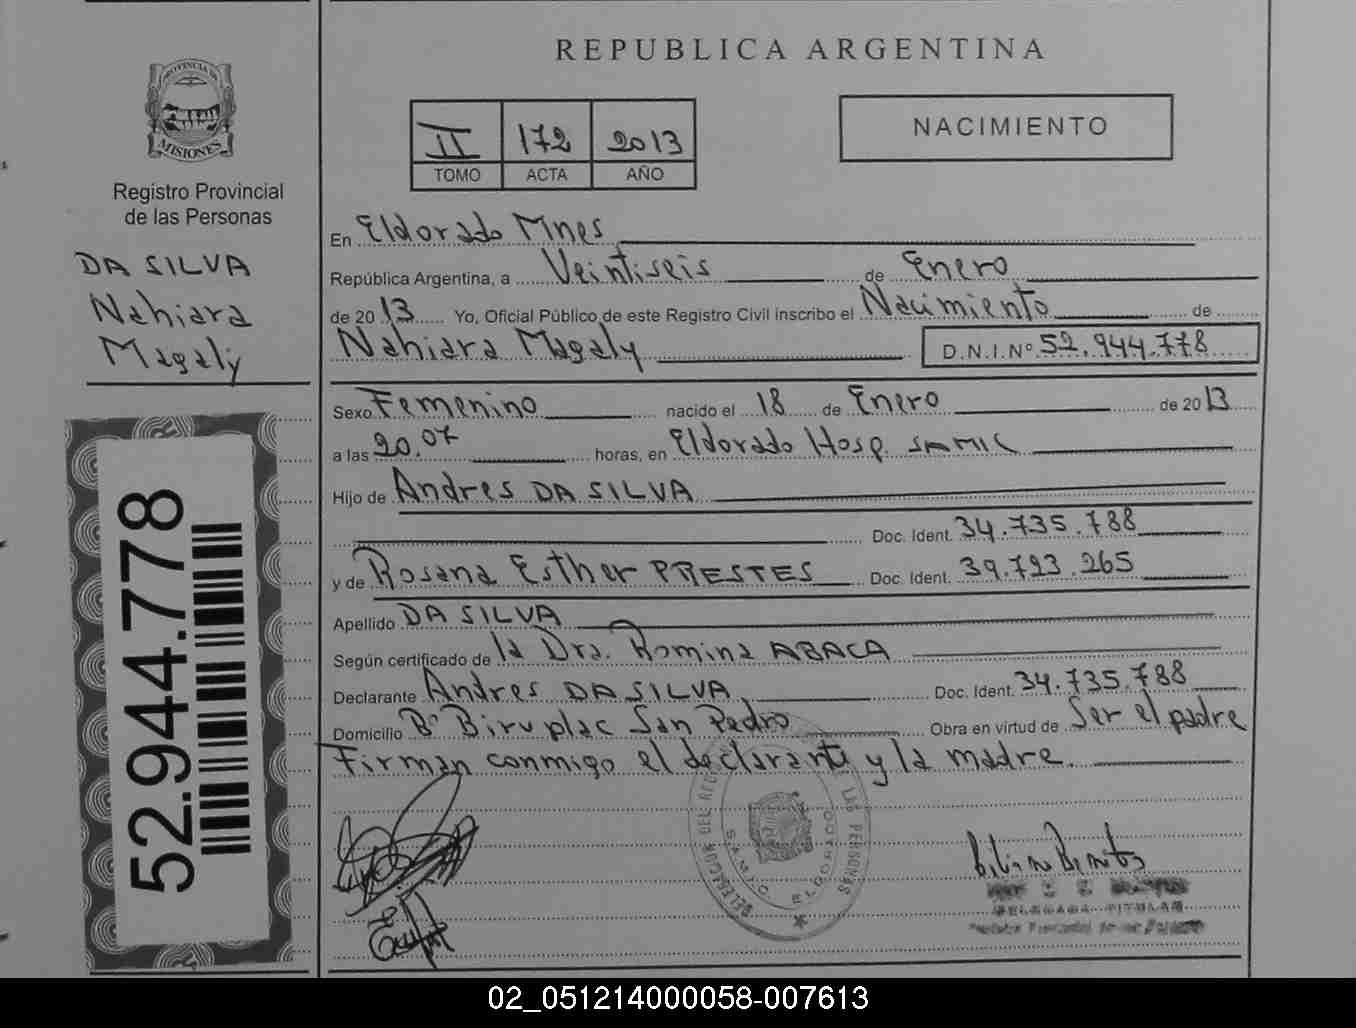 REPUBLICA ARGENTINA
PROVINCIA DE
MISIONES
Registro Provincial
de las Personas
DA SILVA
Nahiara
Magaly
52.944.778
II 172 2013
TOMO ACTA AÑO
NACIMIENTO
En Eldorado Mnes
República Argentina, a Veintiseis de Enero
de 2013 Yo, Oficial Público de este Registro Civil inscribo el Nacimiento de
Nahiara Magaly D.N.I.Nº 52.944.778
Sexo Femenino nacido el 18 de Enero de 2013
a las 20.07 horas, en Eldorado Hosp. SAMIC
Hijo de Andres DA SILVA
Doc. Ident. 34.735.788
y de Rosana Esther PRESTES Doc. Ident. 39.723.265
Apellido DA SILVA
Según certificado de la Dra. Romina ABACA
Declarante Andres DA SILVA Doc. Ident. 34.735.788
Domicilio Bº Biruplac San Pedro Obra en virtud de Ser el padre
Firman conmigo el declarante y la madre.
LAS PERSONAS
SAMIC ELDORADO
DELEGADA TITULAR
02_051214000058-007613